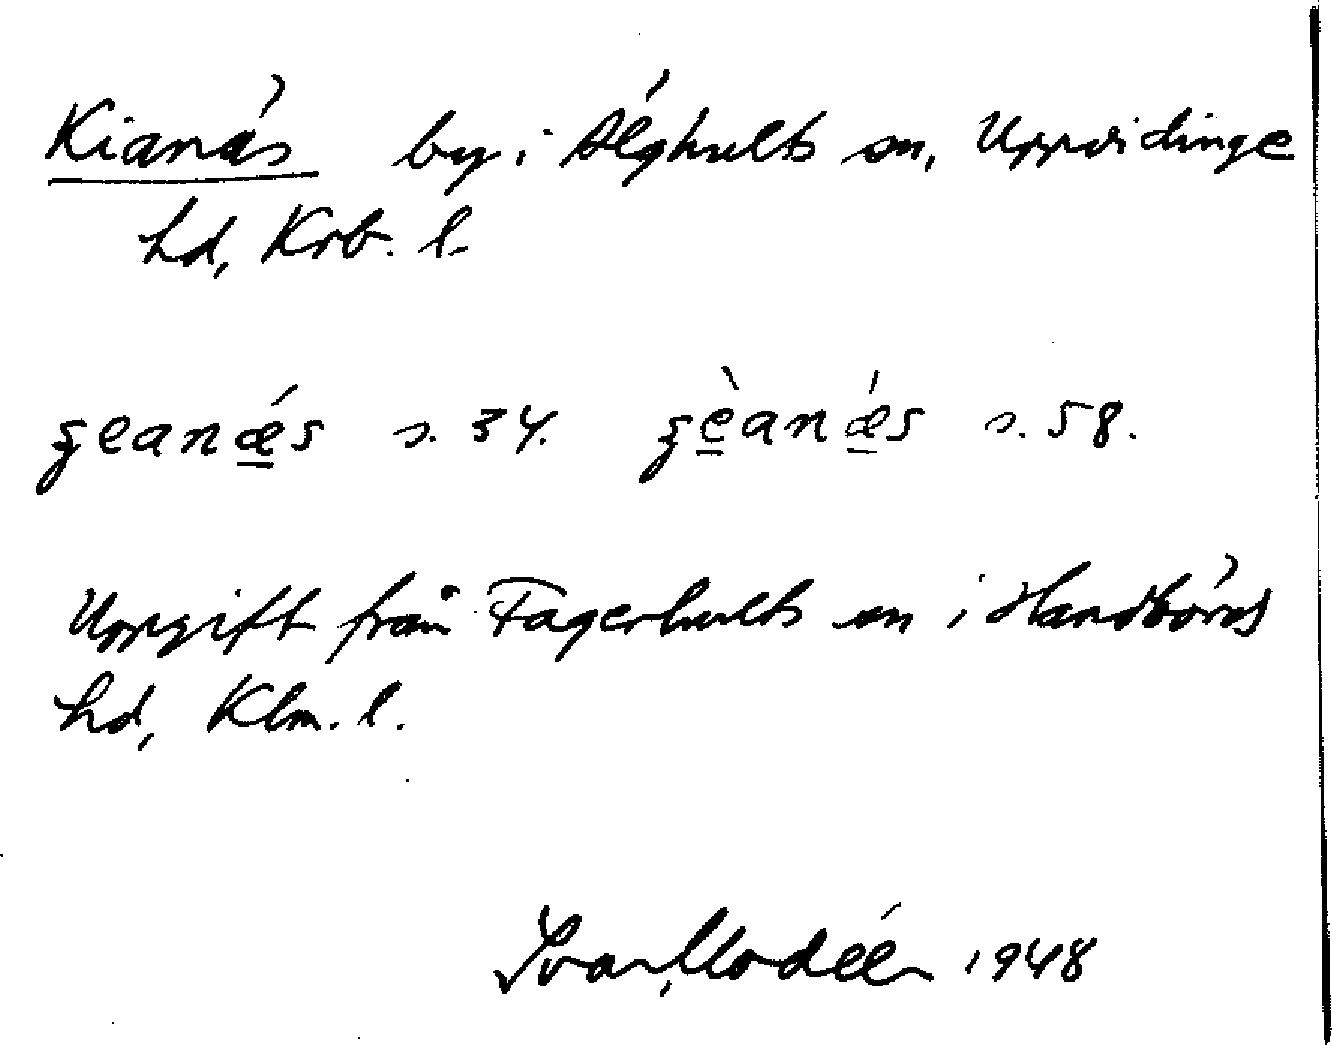 Kianäs by i Älghults sn, Uppvidinge
hd, Krb. l.
ȝeanǽs s. 34. ȝèanǽs s. 58.
Uppgift från Fagerhults sn i Handbörds
hd, Klm. l.
Ivar Modéer 1948